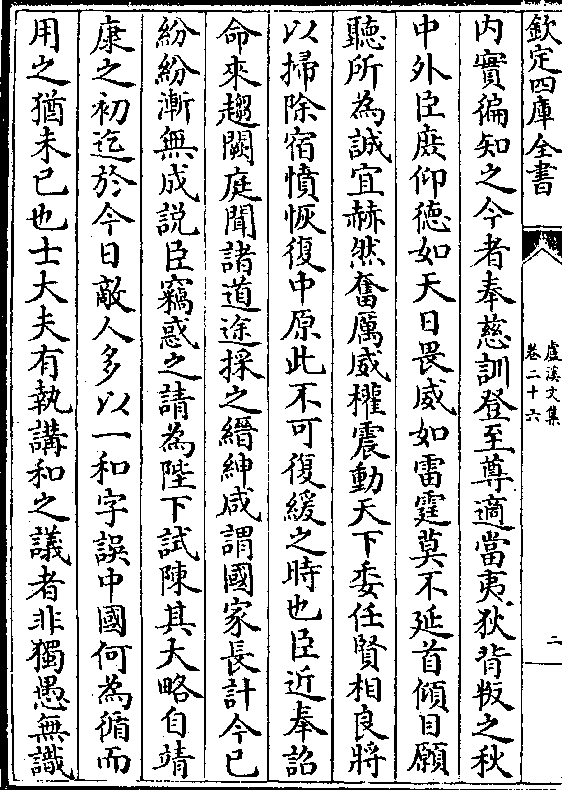 欽定四庫全書
盧溪文集
卷二十六
二
内實徧知之今者奉慈訓登至尊適當夷狄背叛之秋
中外臣庶仰德如天日畏威如雷霆莫不延首傾目願
聽所為誠宜赫然奮厲威權震動天下委任賢相良將
以掃除宿憤恢復中原此不可復緩之時也臣近奉詔
命來趨闕庭聞諸道途採之縉紳咸謂國家長計今已
紛紛漸無成説臣竊惑之請為陛下試陳其大略自靖
康之初迄於今日敵人多以一和字誤中國何為循而
用之猶未已也士大夫有執講和之議者非獨愚無識